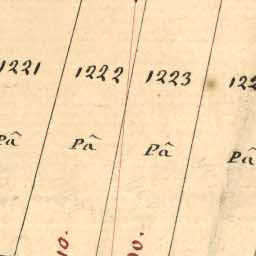 1221 1222 1223
Pâ Pâ Pâ Pâ